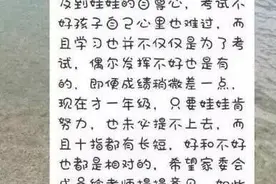 及到娃娃的自尊心，考试不
好孩子自己心里也难过，而
且学习也并不仅仅是为了考
试，偶尔发挥不好也是有
的，即便成绩稍微差一点，
现在才一年级，只要娃娃肯
努力，也未必提不上去，而
且十指都有长短，好和不好
也都是相对的，希望家委会
成员给老师提提意见，如些